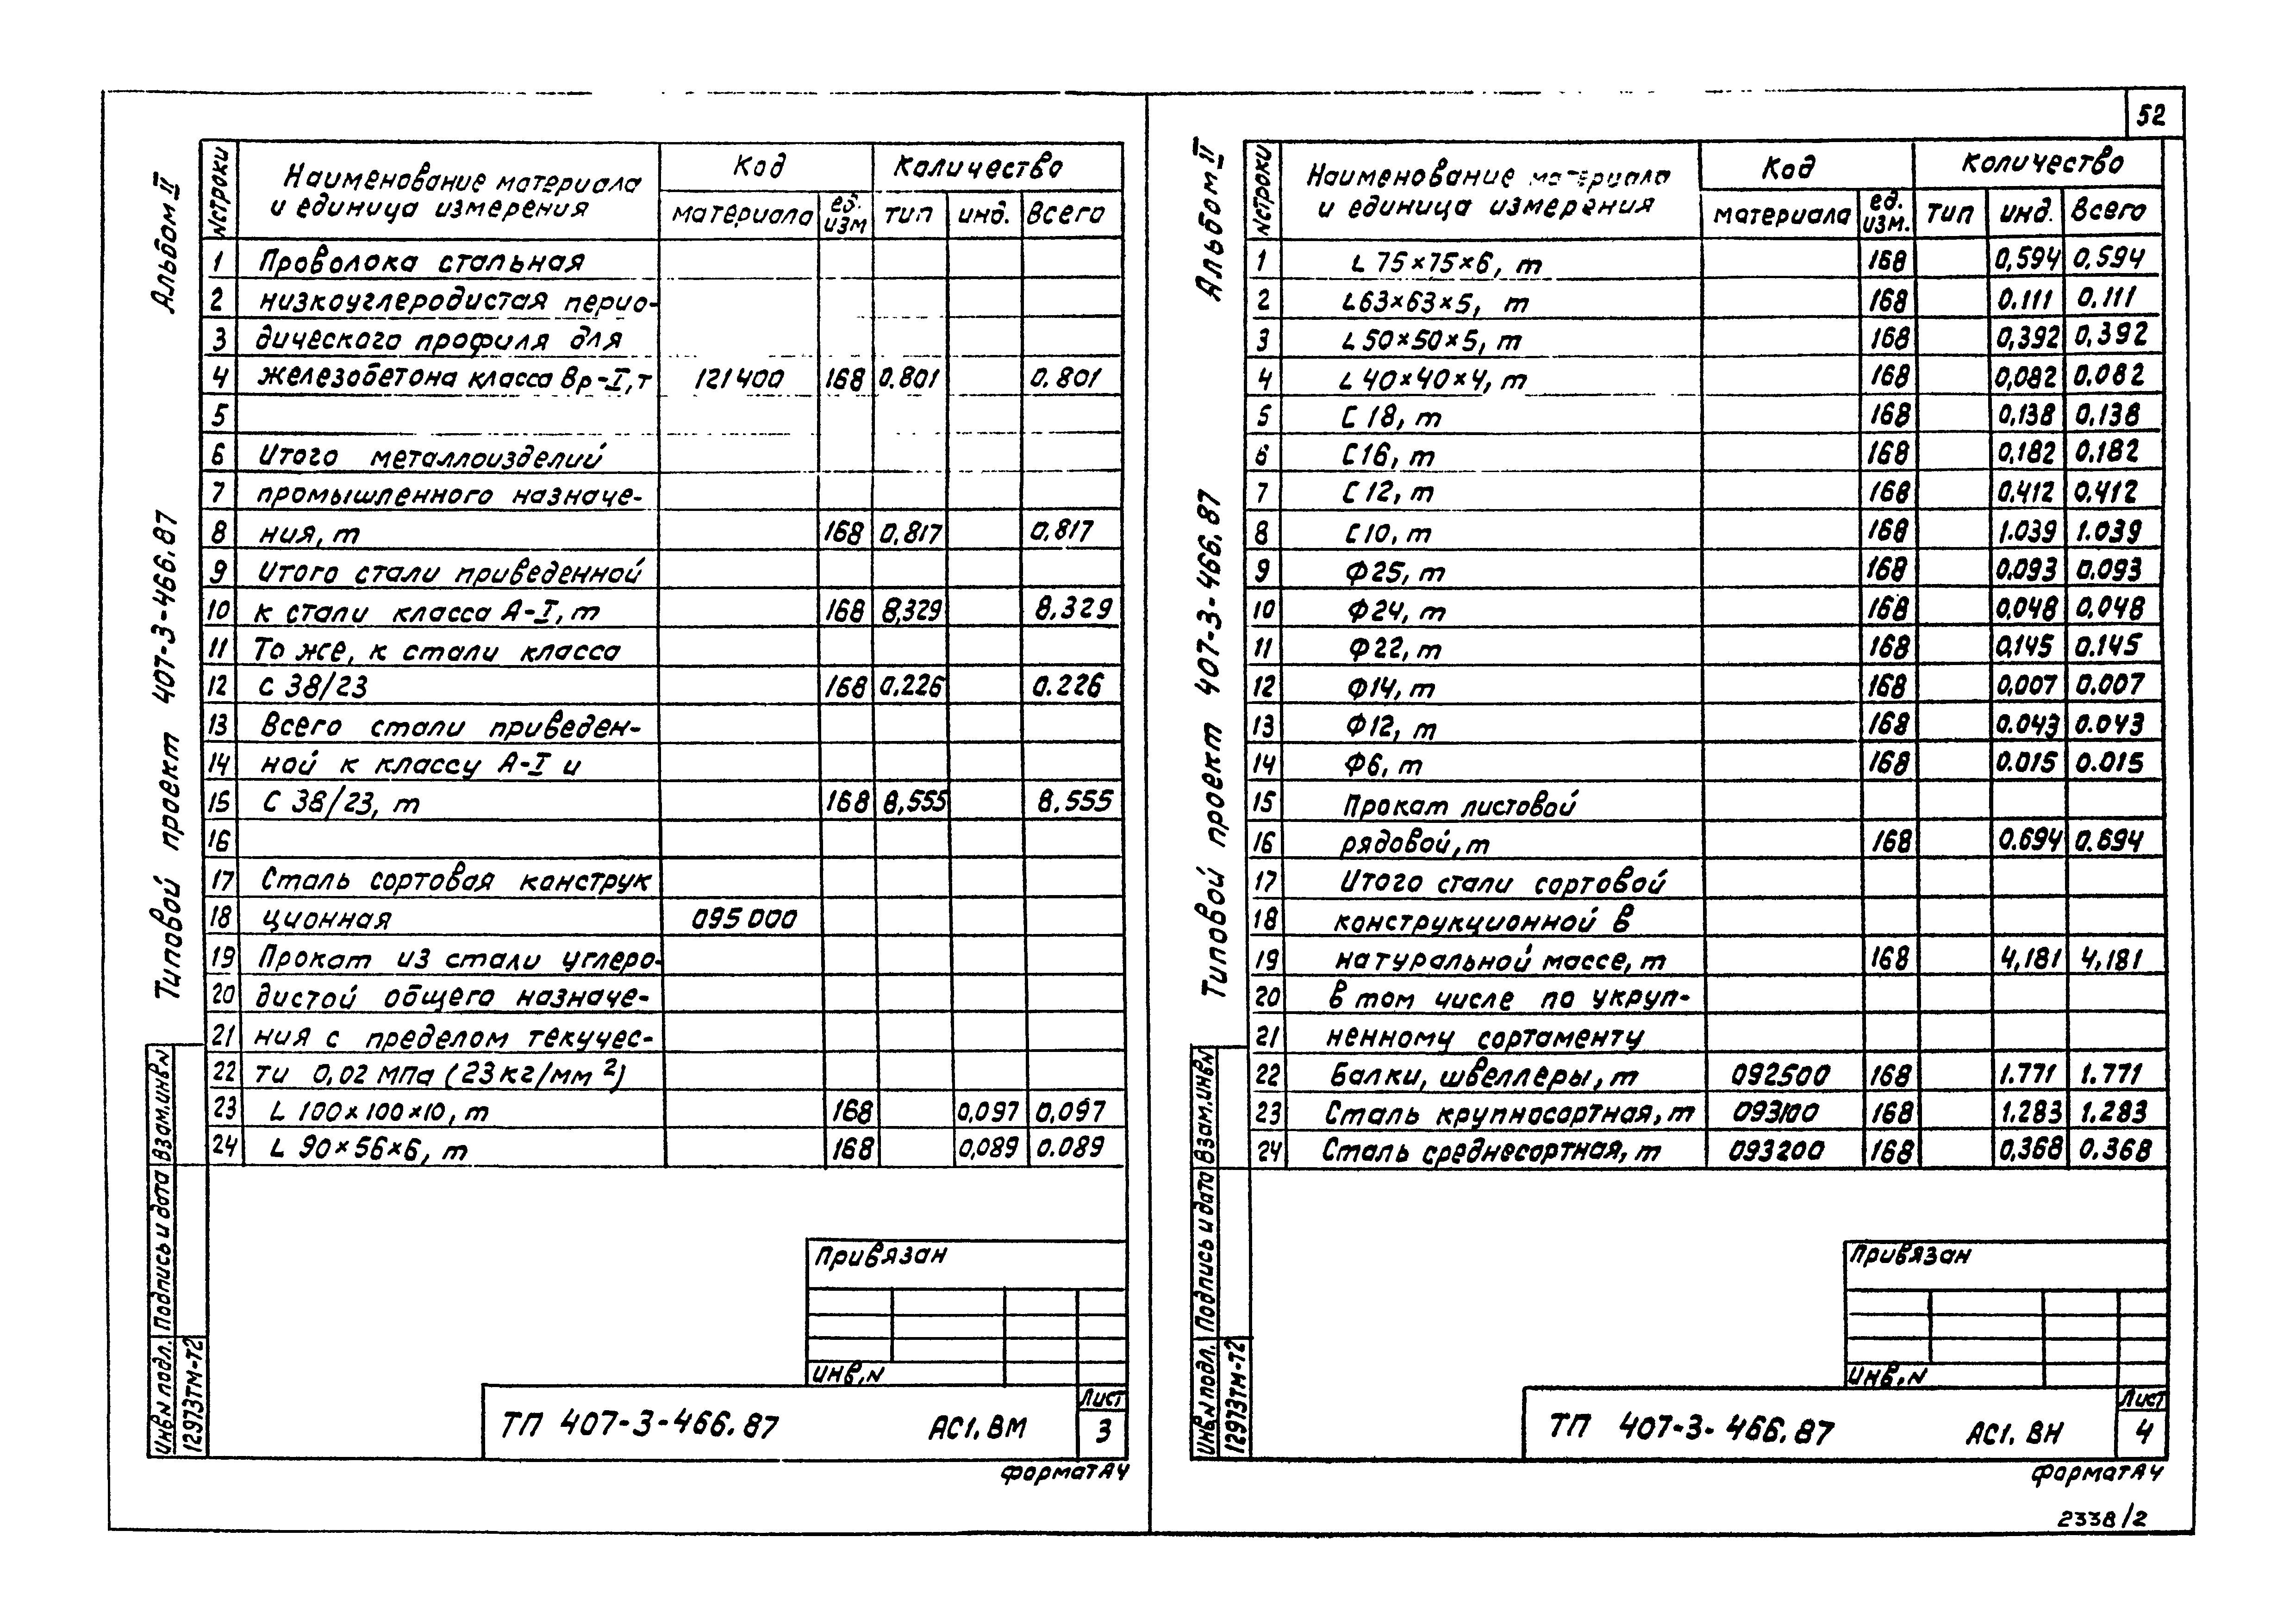 52
Альбом II
Типовой проект 407-3-466.87
Nстроки Наименование материала и единица измерения Код Количество
материала ед. изм тип инд. Всего
1 Проволока стальная
2 низкоуглеродистая перио-
3 дического профиля для
4 железобетона класса Вр-I, т 121400 168 0.801 0.801
5
6 Итого металлоизделий
7 промышленного назначе-
8 ния, т 168 0,817 0,817
9 Итого стали приведенной
10 к стали класса А-I, т 168 8,329 8.329
11 То же, к стали класса
12 С 38/23 168 0,226 0.226
13 Всего стали приведен-
14 ной к классу А-I и
15 С 38/23, т 168 8,555 8.555
16
17 Сталь сортовая конструк
18 ционная 095000
19 Прокат из стали углеро-
20 дистой общего назначе-
21 ния с пределом текучес-
22 ти 0,02 МПа (23кг/мм²)
23 L 100×100×10, т 168 0,097 0,097
24 L 90×56×6, т 168 0,089 0.089
Привязан
Инв.N
ТП 407-3-466.87 АС1. ВМ
Лист
3
Формат А4
Взам.инв.N
Подпись и дата
Инв.N подл.
12973ТМ-Т2
Альбом II
Типовой проект 407-3-466.87
Nстроки Наименование материала и единица измерения Код Количество
материала ед. изм. тип инд. Всего
1 L 75×75×6, т 168 0,594 0,594
2 L63×63×5, т 168 0.111 0.111
3 L50×50×5, т 168 0,392 0,392
4 L40×40×4, т 168 0,082 0.082
5 С 18, т 168 0,138 0.138
6 С16, т 168 0,182 0.182
7 С 12, т 168 0.412 0,412
8 С10, т 168 1.039 1.039
9 Ф25, т 168 0,093 0.093
10 Ф24, т 168 0,048 0,048
11 Ф22, т 168 0,145 0.145
12 Ф14, т 168 0,007 0.007
13 Ф12, т 168 0.043 0.043
14 Ф6, т 168 0.015 0.015
15 Прокат листовой
16 рядовой, т 168 0.694 0.694
17 Итого стали сортовой
18 конструкционной в
19 натуральной массе, т 168 4,181 4,181
20 в том числе по укруп-
21 ненному сортаменту
22 Балки, швеллеры, т 092500 168 1.771 1.771
23 Сталь крупносортная, т 093100 168 1.283 1.283
24 Сталь среднесортная, т 093200 168 0,368 0.368
Привязан
Инв.N
ТП 407-3-466.87 АС1. ВН
Лист
4
Формат А4
Взам.инв.N
Подпись и дата
Инв.N подл.
12973ТМ-Т2
2338/2